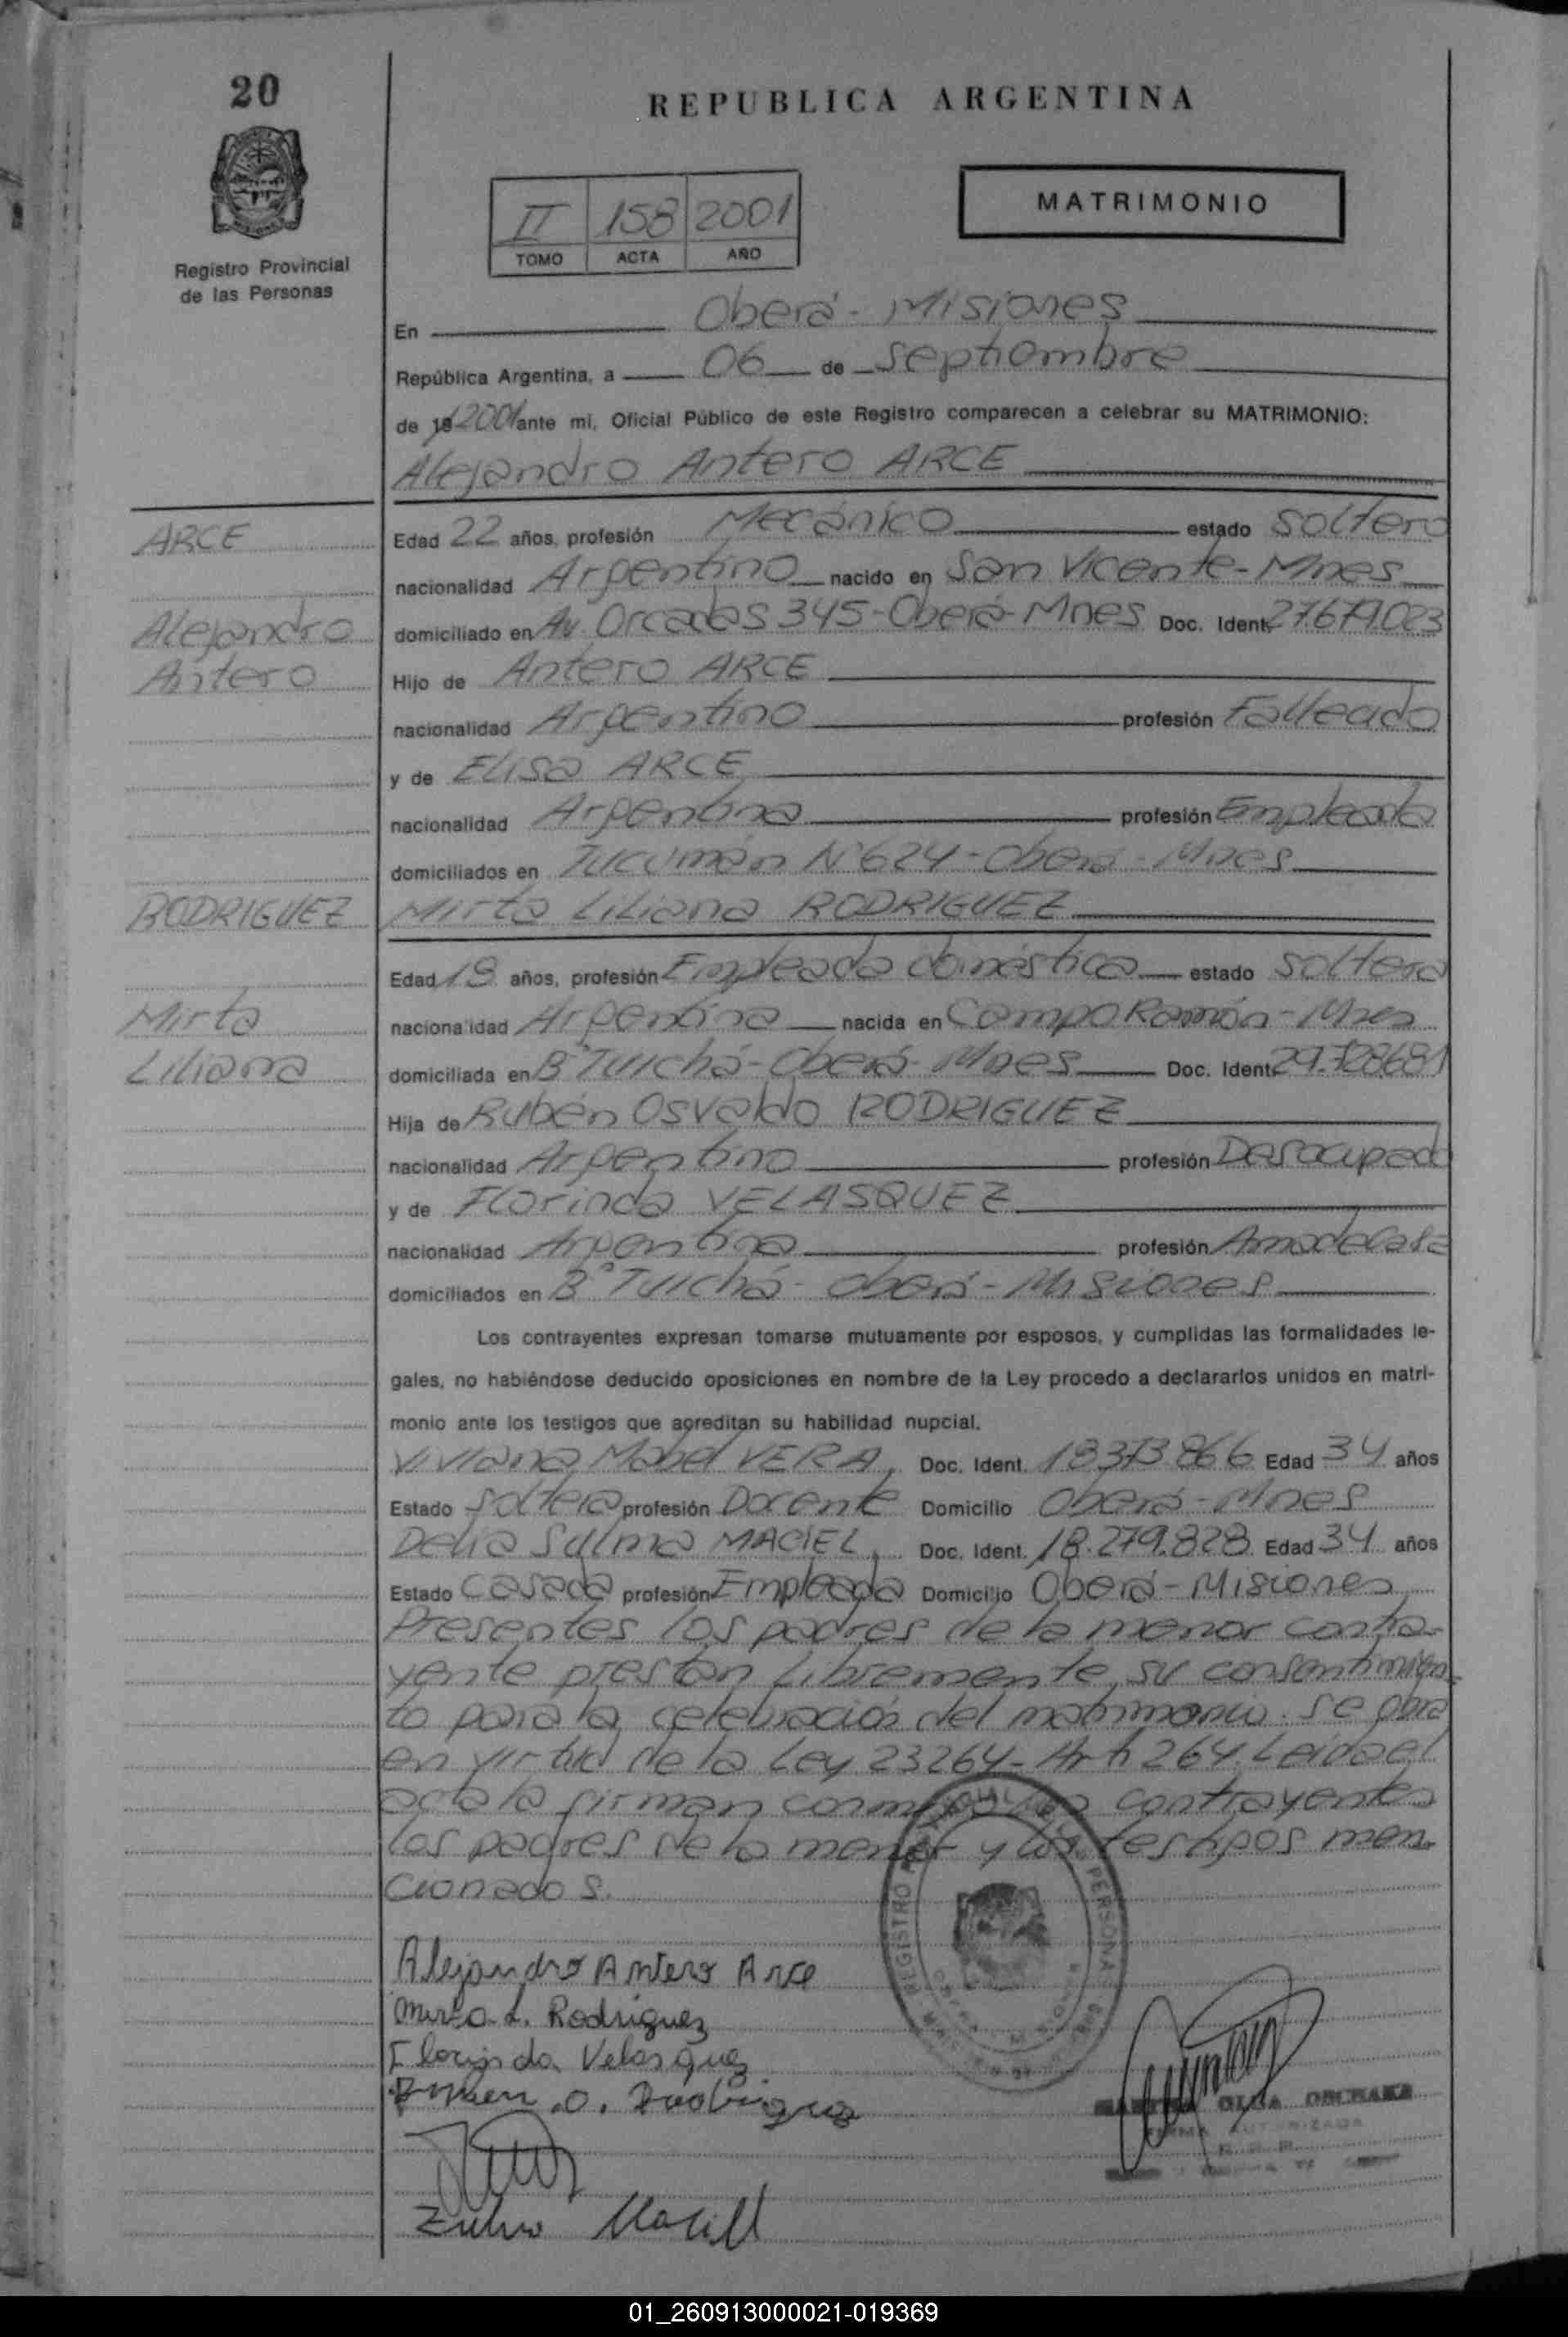 20
REPUBLICA ARGENTINA
MATRIMONIO
II 158 2001
TOMO ACTA AÑO
Registro Provincial
de las Personas
En Oberá - Misiones
República Argentina, a 06 de Septiembre
de 19 2001 ante mi, Oficial Público de este Registro comparecen a celebrar su MATRIMONIO:
Alejandro Antero ARCE
ARCE
Edad 22 años, profesión Mecánico estado soltero
nacionalidad Argentino nacido en San Vicente - Mnes
Alejandro
domiciliado en Av. Orcadas 345 - Oberá - Mnes Doc. Ident. 27.679.023
Antero
Hijo de Antero ARCE
nacionalidad Argentino profesión Falleado
y de Elisa ARCE
nacionalidad Argentina profesión Empleada
domiciliados en Tucumán Nº 624 - Oberá - Mnes
RODRIGUEZ
Mirta Liliana RODRIGUEZ
Edad años, profesión Empleada doméstica estado soltera
Mirta
nacionalidad Argentina nacida en Campo Ramón - Mnes
Liliana
domiciliada en Bº Tuichá - Oberá - Mnes Doc. Ident. 29.728.681
Hija de Rubén Osvaldo RODRIGUEZ
nacionalidad Argentino profesión Desocupado
y de Florinda VELASQUEZ
nacionalidad Argentina profesión Ama de Casa
domiciliados en Bº Tuichá - Oberá - Misiones
Los contrayentes expresan tomarse mutuamente por esposos, y cumplidas las formalidades le-
gales, no habiéndose deducido oposiciones en nombre de la Ley procedo a declararlos unidos en matri-
monio ante los testigos que acreditan su habilidad nupcial.
Viviana Mabel VERA, Doc. Ident. 18.373.866 Edad 34 años
Estado soltera profesión Docente Domicilio Oberá - Mnes
Delia Sulma MACIEL, Doc. Ident. 18.279.828 Edad 34 años
Estado Casada profesión Empleada Domicilio Oberá - Misiones
Presentes los padres de la menor contra-
yente prestan libremente su consentimien-
to para la celebración del matrimonio. Se obra
en virtud de la Ley 23264 - Art. 264. Leída el
acta la firman conmigo los contrayentes
los padres de la menor y los testigos men-
cionados.
Alejandro Antero Arce
Mirta L. Rodriguez
Florinda Velasquez
Ruben O. Rodriguez
Zulma Maciel
REGISTRO PERSONAS
OLGA
FIRMA AUTORIZADA
01_260913000021-019369